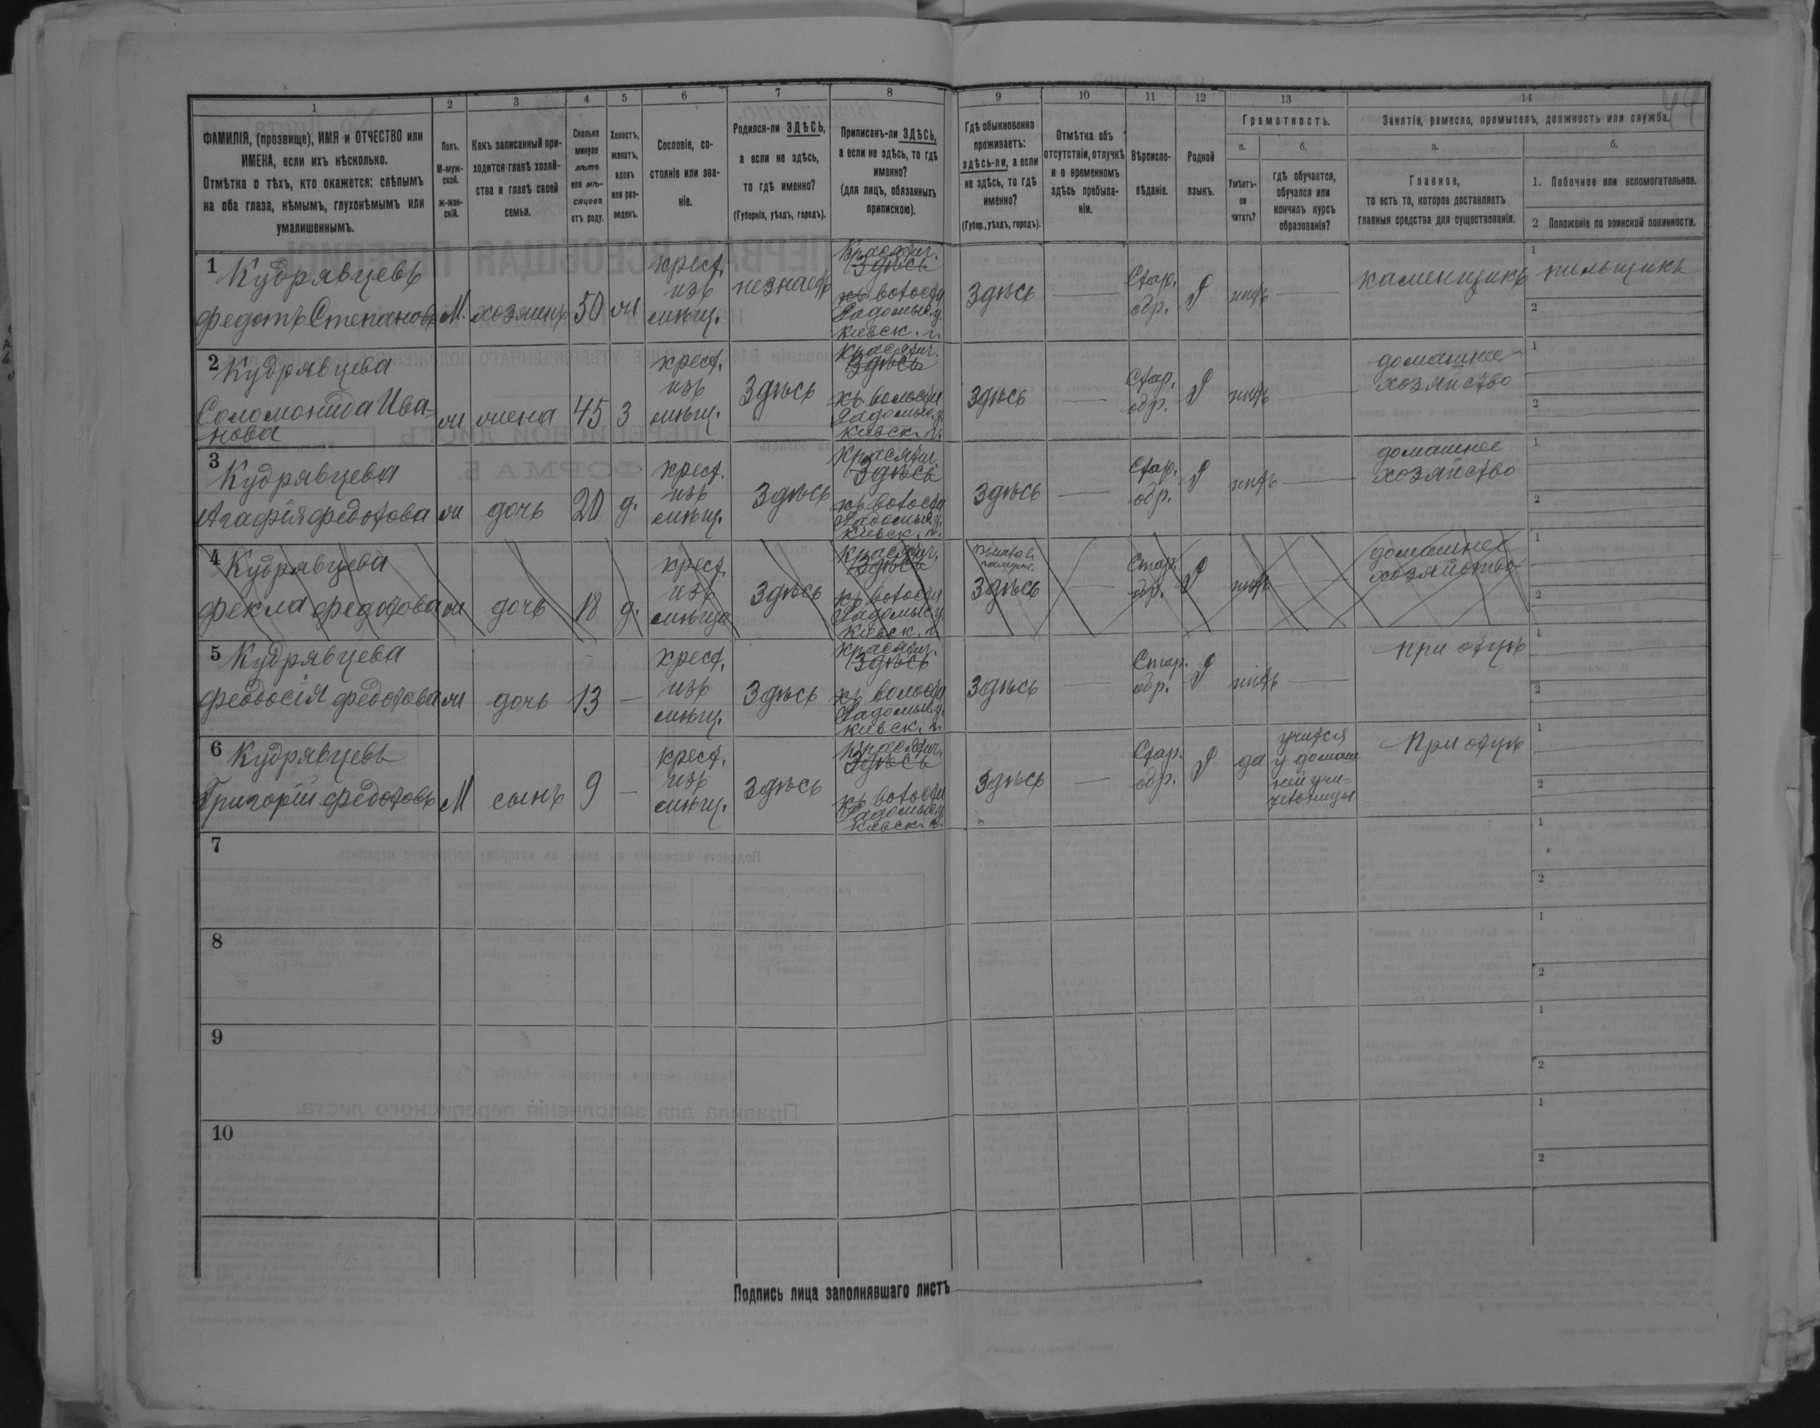 1 2 3 4 5 6 7 8 9 10 11 12 13 14
ФАМИЛІЯ, (прозвище), ИМЯ и ОТЧЕСТВО или
ИМЕНА, если ихъ нѣсколько.
Отмѣтка о тѣхъ, кто окажется: слѣпымъ
на оба глаза, нѣмымъ, глухонѣмымъ или
умалишеннымъ.
Полъ.
М-муж-
ской.
Ж-жен-
скій.
Какъ записанный при-
ходится главѣ хозяй-
ства и главѣ своей
семьи.
Сколько
минуло
лѣтъ
или мѣ-
сяцевъ
отъ роду.
Холостъ,
женатъ,
вдовъ
или раз-
веденъ.
Сословіе, со-
стояніе или зва-
ніе.
Родился-ли ЗДѢСЬ,
а если не здѣсь,
то гдѣ именно?
(Губернія, уѣздъ, городъ).
Приписанъ-ли ЗДѢСЬ,
а если не здѣсь, то гдѣ
именно?
(для лицъ, обязанныхъ
припискою).
Гдѣ обыкновенно
проживаетъ:
здѣсь-ли, а если
не здѣсь, то гдѣ
именно?
(Губер., уѣздъ, городъ).
Отмѣтка объ
отсутствіи, отлучкѣ
и о временномъ
здѣсь пребыва-
ніи.
Вѣроиспо-
вѣданіе.
Родной
языкъ.
Грамотность.
а. б.
Умѣетъ-
ли
читать?
гдѣ обучается,
обучался или
кончилъ курсъ
образованія?
Занятіе, ремесло, промыселъ, должность или служба.
а. б.
Главное,
то есть то, которое доставляетъ
главныя средства для существованія.
1. Побочное или вспомогательное.
2 Положеніе по воинской повинности.
44
1 Кудрявцевъ
Федотъ Степановъ
М. хозяинъ 50 ж
крест.
изъ
мѣщ.
незнаетъ
Здѣсь
волости
Радомыс. у.
Киевск. г.
Здѣсь —
Стар.
обр.
Р нѣтъ —
каменщикъ
1 пильщикъ
2
2 Кудрявцева
Соломонида Ива-
нова
ж жена 45 З
крест.
изъ
мѣщ.
Здѣсь
Здѣсь
волости
Радомыс. у.
Киевск. г.
Здѣсь —
Стар.
обр.
Р нѣтъ —
домашнее
хозяйство
1
2
3 Кудрявцева
Агафія Федотова
ж дочь 20 д.
крест.
изъ
мѣщ.
Здѣсь
Здѣсь
волости
Радомыс. у.
Киевск. г.
Здѣсь —
Стар.
обр.
Р нѣтъ —
домашнее
хозяйство
1
2
4 Кудрявцева
Фекла Федотова
ж дочь 18 д.
крест.
изъ
мѣщ.
Здѣсь
Здѣсь
волости
Радомыс. у.
Киевск. г.
Здѣсь —
Стар.
обр.
Р нѣтъ
домашнее
хозяйство
1
2
5 Кудрявцева
Феодосія Федотова
ж дочь 13 —
крест.
изъ
мѣщ.
Здѣсь
Здѣсь
волости
Радомыс. у.
Киевск. г.
Здѣсь —
Стар.
обр.
Р нѣтъ —
при отцѣ
1
2
6 Кудрявцевъ
Григорій Федотовъ
М сынъ 9 —
крест.
изъ
мѣщ.
Здѣсь
Здѣсь
волости
Радомыс. у.
Киевск. г.
Здѣсь —
Стар.
обр.
Р да
учится
у домаш
ней учи-
тельницы
При отцѣ
1
2
7
1
2
8
1
2
9
1
2
10
1
2
Подпись лица заполнявшаго листъ